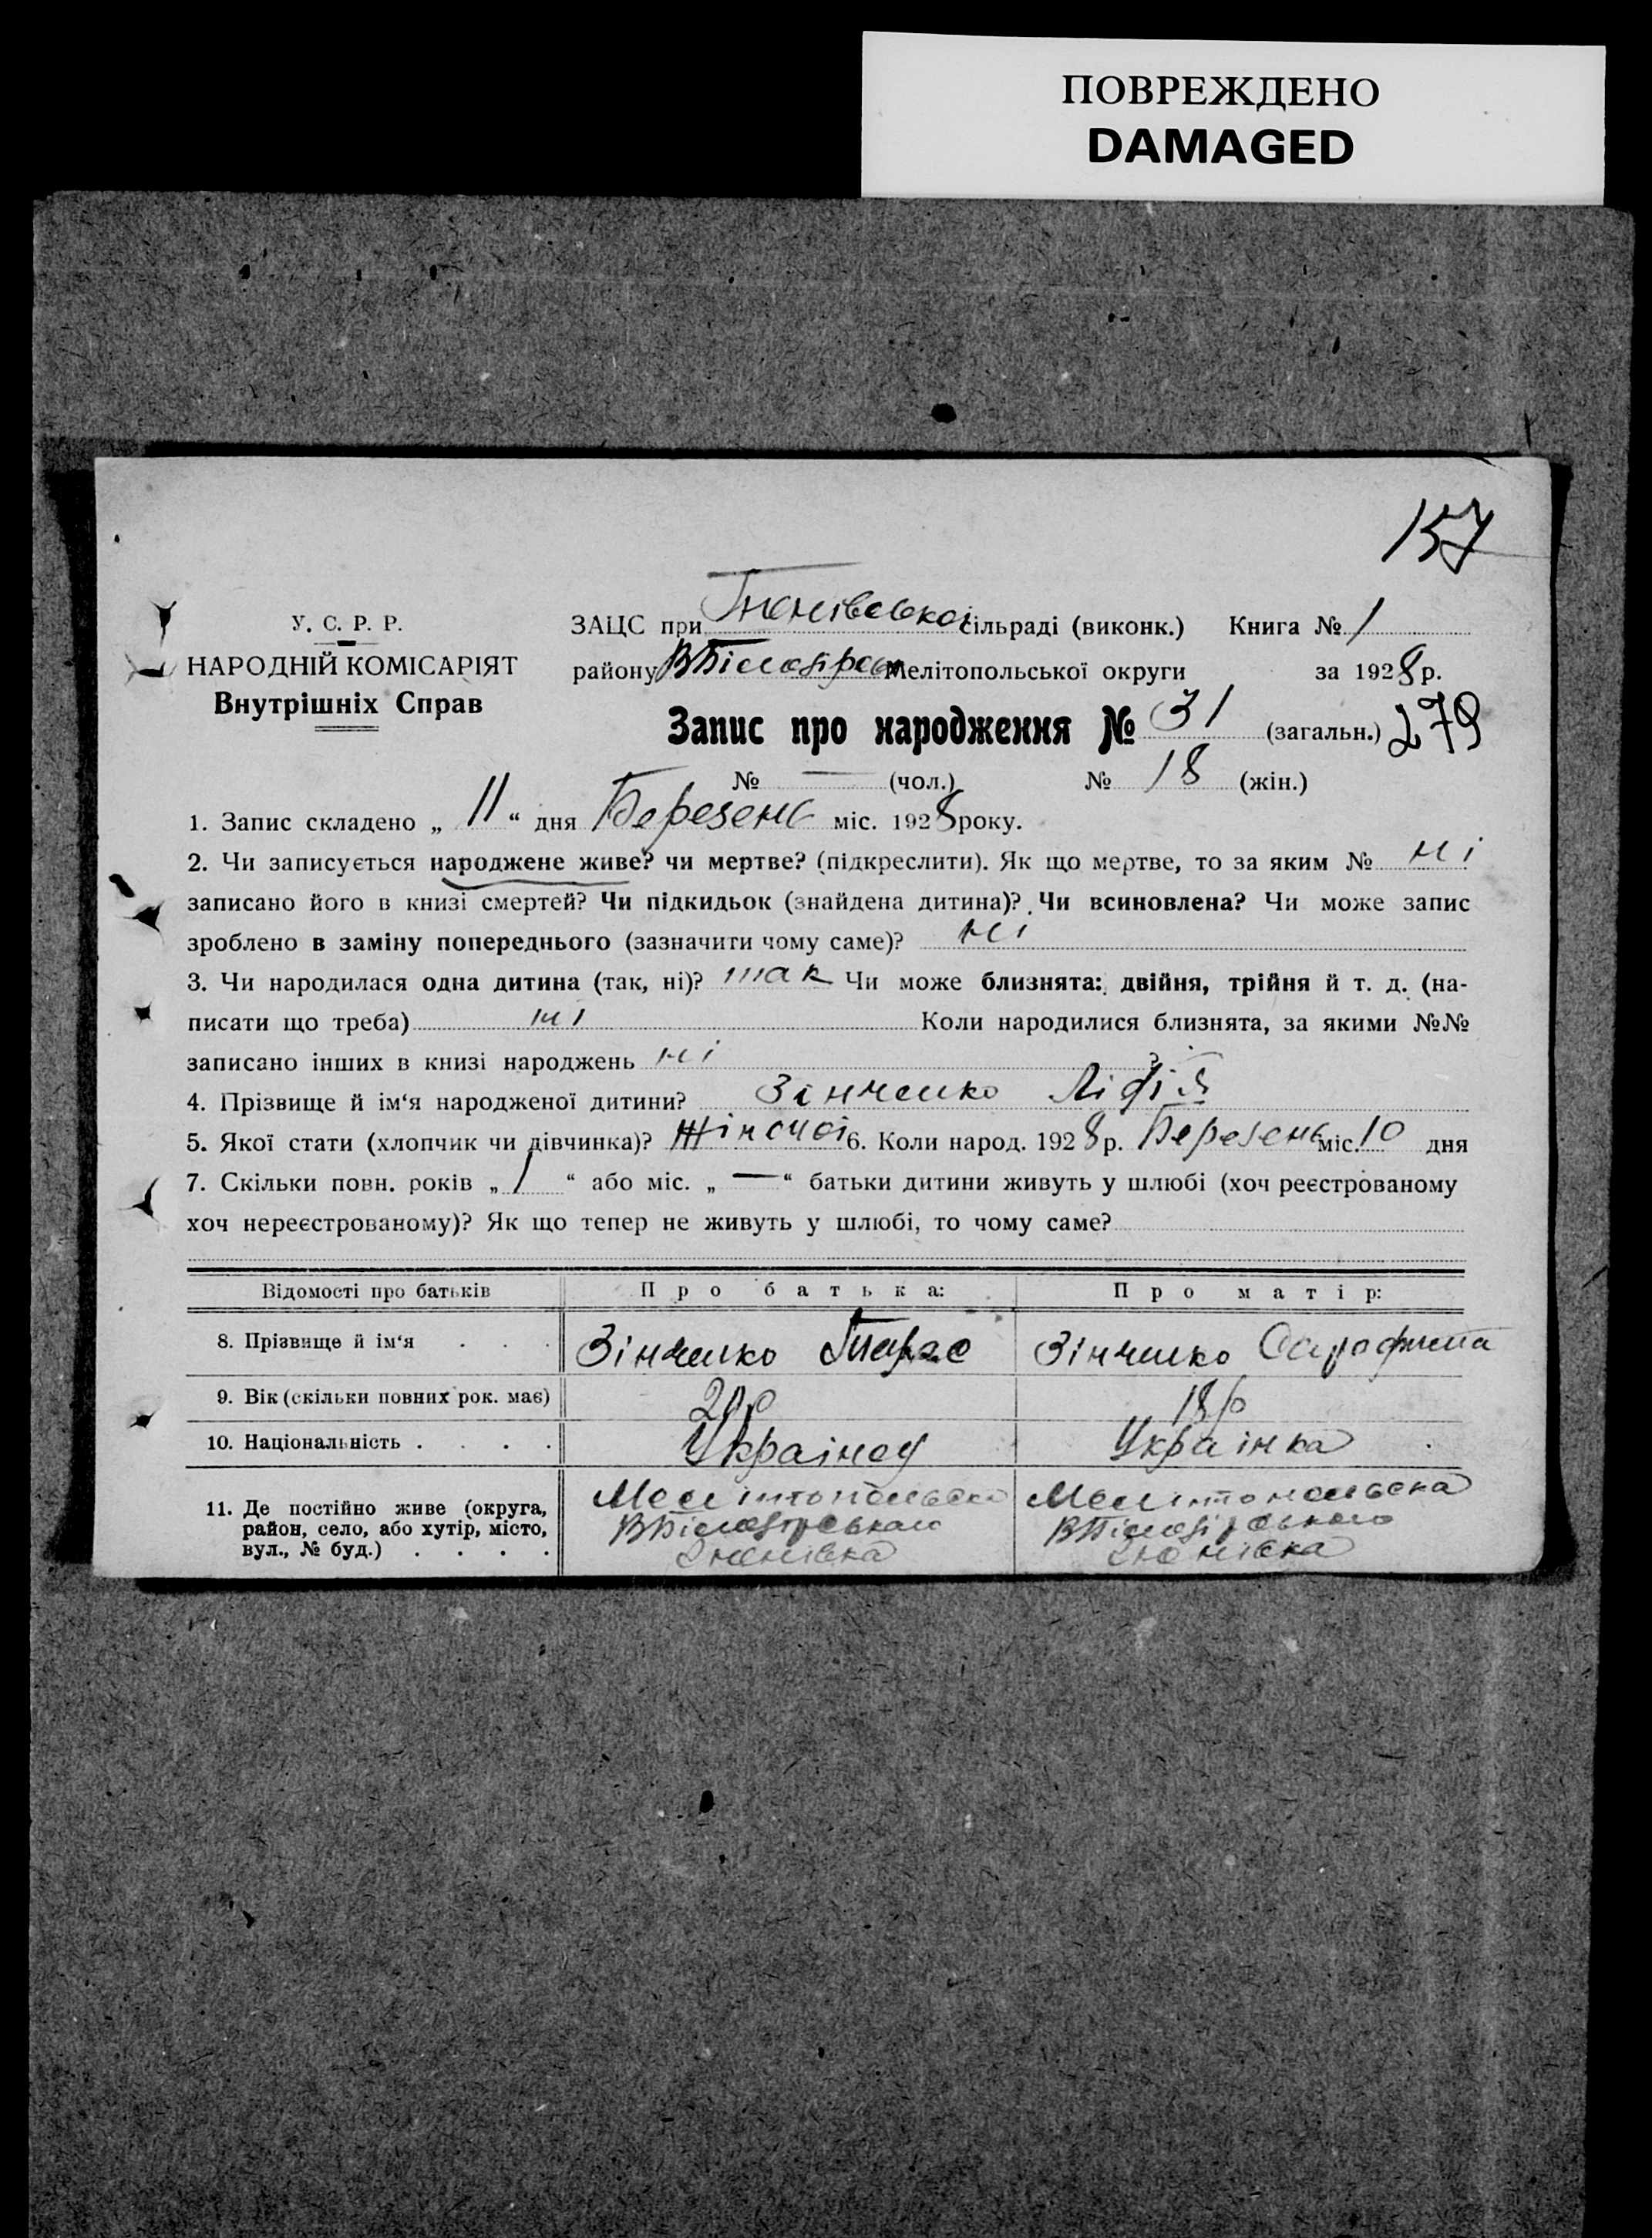 ПОВРЕЖДЕНО
DAMAGED
157
У. С. Р. Р.
НАРОДНІЙ КОМІСАРІЯТ
Внутрішніх Справ
ЗАЦС при сільраді (виконк.) Книга № 1
району Мелітопольської округи за 1928 р.
Запис про народження № 31 (загальн.) 279
№ — (чол.) № 18 (жін.)
1. Запис складено „ 11 “ дня Березень міс. 1928 року.
2. Чи записується народжене живе? чи мертве? (підкреслити). Як що мертве, то за яким № ні
записано його в книзі смертей? Чи підкидьок (знайдена дитина)? Чи всиновлена? Чи може запис
зроблено в заміну попереднього (зазначити чому саме)? ні
3. Чи народилася одна дитина (так, ні)? так Чи може близнята: двійня, трійня й т. д. (на-
писати що треба) ні Коли народилися близнята, за якими №№
записано інших в книзі народжень ні
4. Прізвище й ім‘я народженої дитини? Зінченко
5. Якої стати (хлопчик чи дівчинка)? Жіночої 6. Коли народ. 1928 р. Березень міс. 10 дня
7. Скільки повн. років „ 1 “ або міс. „ — “ батьки дитини живуть у шлюбі (хоч реєстрованому
хоч нереєстрованому)? Як що тепер не живуть у шлюбі, то чому саме?
Відомості про батьків Про батька: Про матір:
8. Прізвище й ім‘я . . . Зінченко Тарас Зінченко
9. Вік (скільки повних рок. має) 20 р 18 р
10. Національність . . . . Українец Українка
11. Де постійно живе (округа,
район, село, або хутір, місто,
вул., № буд.) . . . .
Мелітопольська Мелітопольська